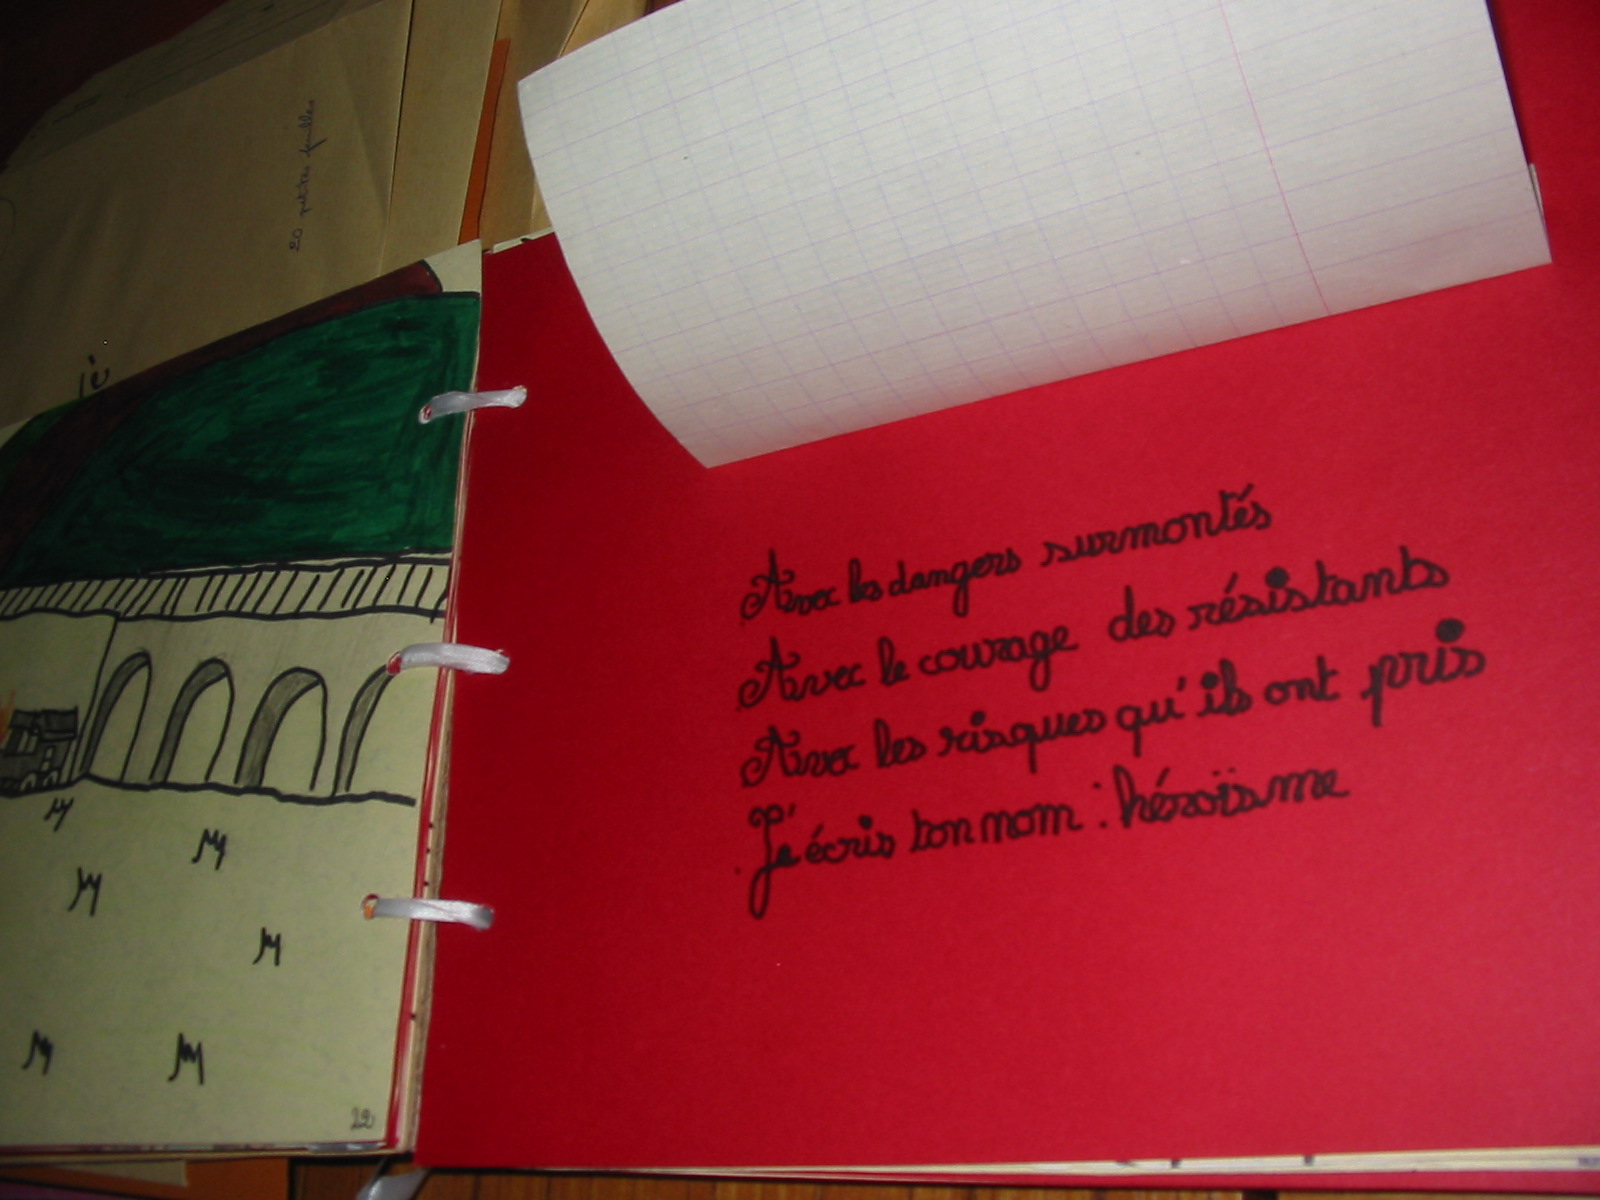 20 petites feuilles
Avec les dangers surmontés
Avec le courage des résistants
Avec les risques qu'ils ont pris
J'écris ton nom : héroïsme
22